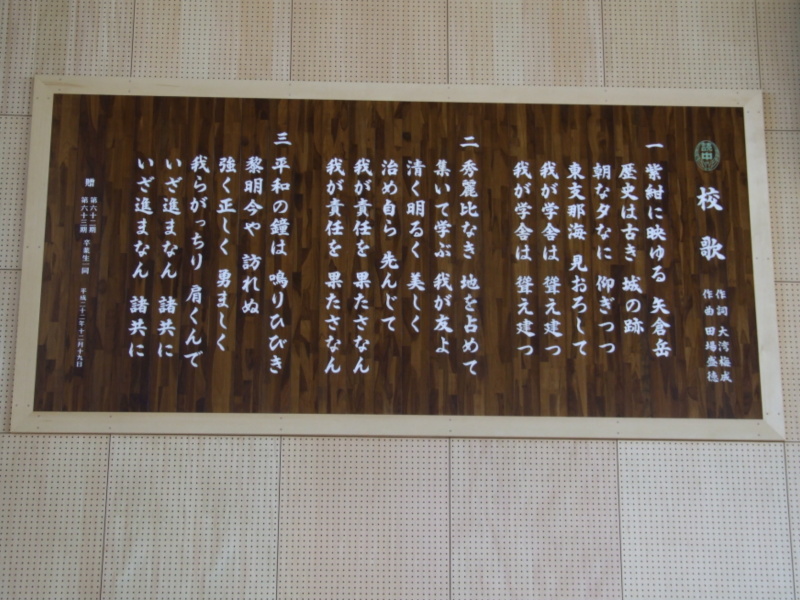 校歌
作詞 大湾梅成
作曲 田場盛徳
一 紫紺に映ゆる 矢倉岳
歴史は古き 城の跡
朝な夕なに 仰ぎつつ
東支那海 見おろして
我が学舎は 聳え建つ
我が学舎は 聳え建つ
二 秀麗比なき 地を占めて
集いて学ぶ 我が友よ
清く明るく 美しく
治め自ら 先んじて
我が責任を 果たさなん
我が責任を 果たさなん
三 平和の鐘は 鳴りひびき
黎明今や 訪れぬ
強く正しく 勇ましく
我らがっちり 肩くんで
いざ進まなん 諸共に
いざ進まなん 諸共に
贈 第六十二期
第六十三期 卒業生一同
平成二十二年十二月十九日